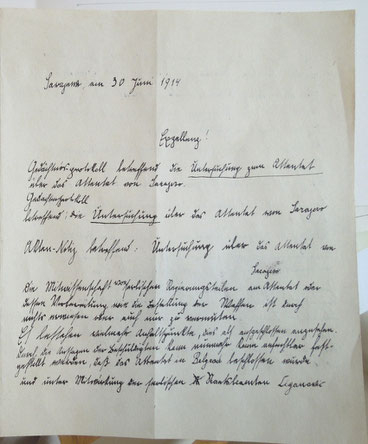 Sarajevo, am 30 Juni 1914
Exzellenz!
Gedächtnisprotokoll betreffend die Untersuchung zum Attentat
über das Attentat von Sarajevo.
Gedächtnisprotokoll
betreffend die Untersuchung über das Attentat von Sarajevo
Akten-Notiz betreffend: Untersuchung über das Attentat von
Sarajevo
Die Mitwissenschaft von serbischen Regierungsteilen am Attentat oder
dessen Vorbereitung und die Beistellung der Waffen ist durch
nichts erwiesen oder auch nur zu vermuten.
Es bestehen vielmehr Anhaltspunkte, das als ausgeschlossen anzusehen.
Durch die Aussagen der Beschuldigten kann nunmehr kaum anfechtbar fest-
gestellt werden, daß das Attentat in Belgrad beschlossen wurde
und unter Mitwirkung der serbischen Staatsbeamten